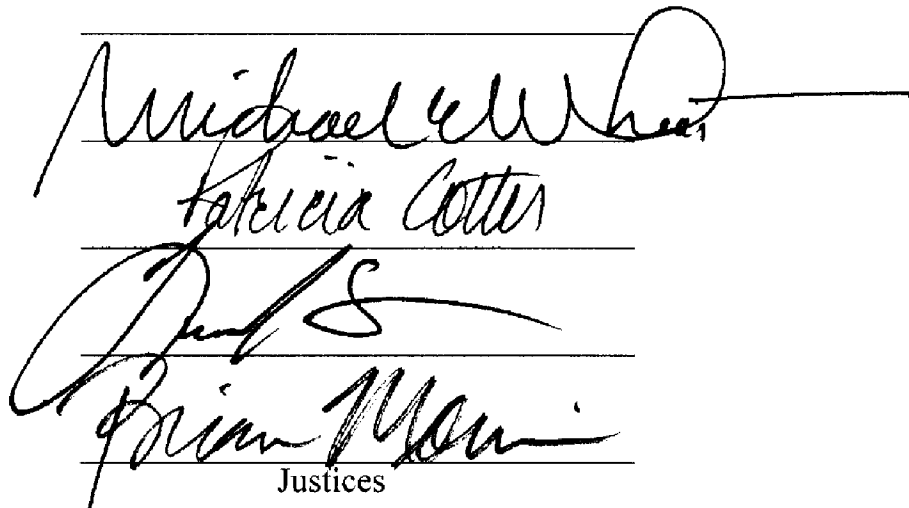 Michael E Wheat
Patricia Cotter
Brian Morris
Justices